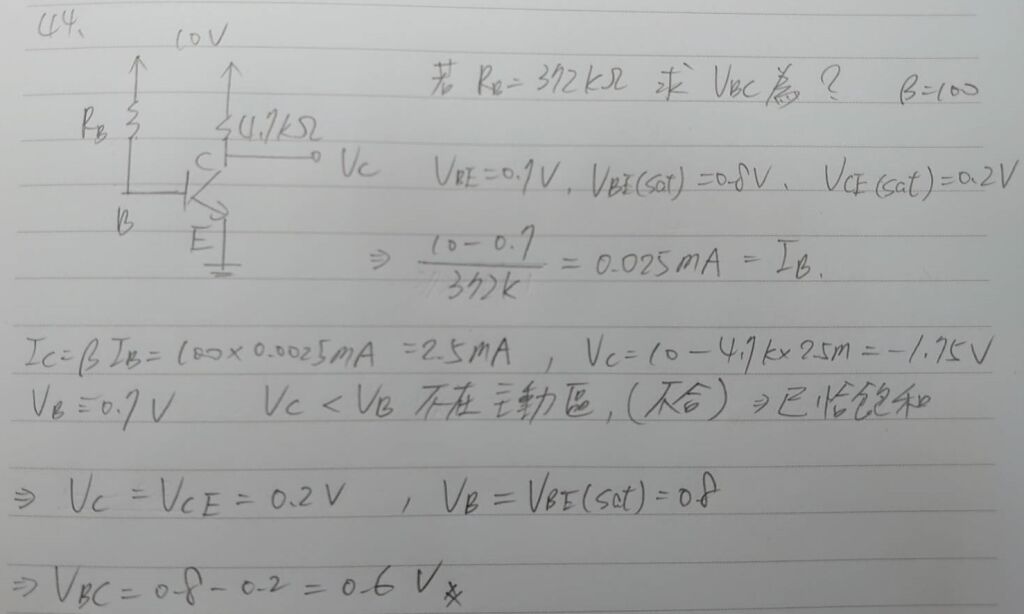 44.
10V
若 RB=372kΩ 求 VBC 為? β=100
RB
4.7kΩ
C
VC
VBE=0.7V, VBE(sat)=0.8V、VCE(sat)=0.2V
B
E
⇒ (10-0.7)/372k = 0.025mA = IB.
IC=βIB=100×0.0025mA =2.5mA , VC=10-4.7k×2.5m=-1.75V
VB=0.7V VC<VB 不在主動區,(不合)⇒已恰飽和
⇒ VC = VCE = 0.2V , VB = VBE(sat)=0.8
⇒ VBC = 0.8-0.2 = 0.6 V